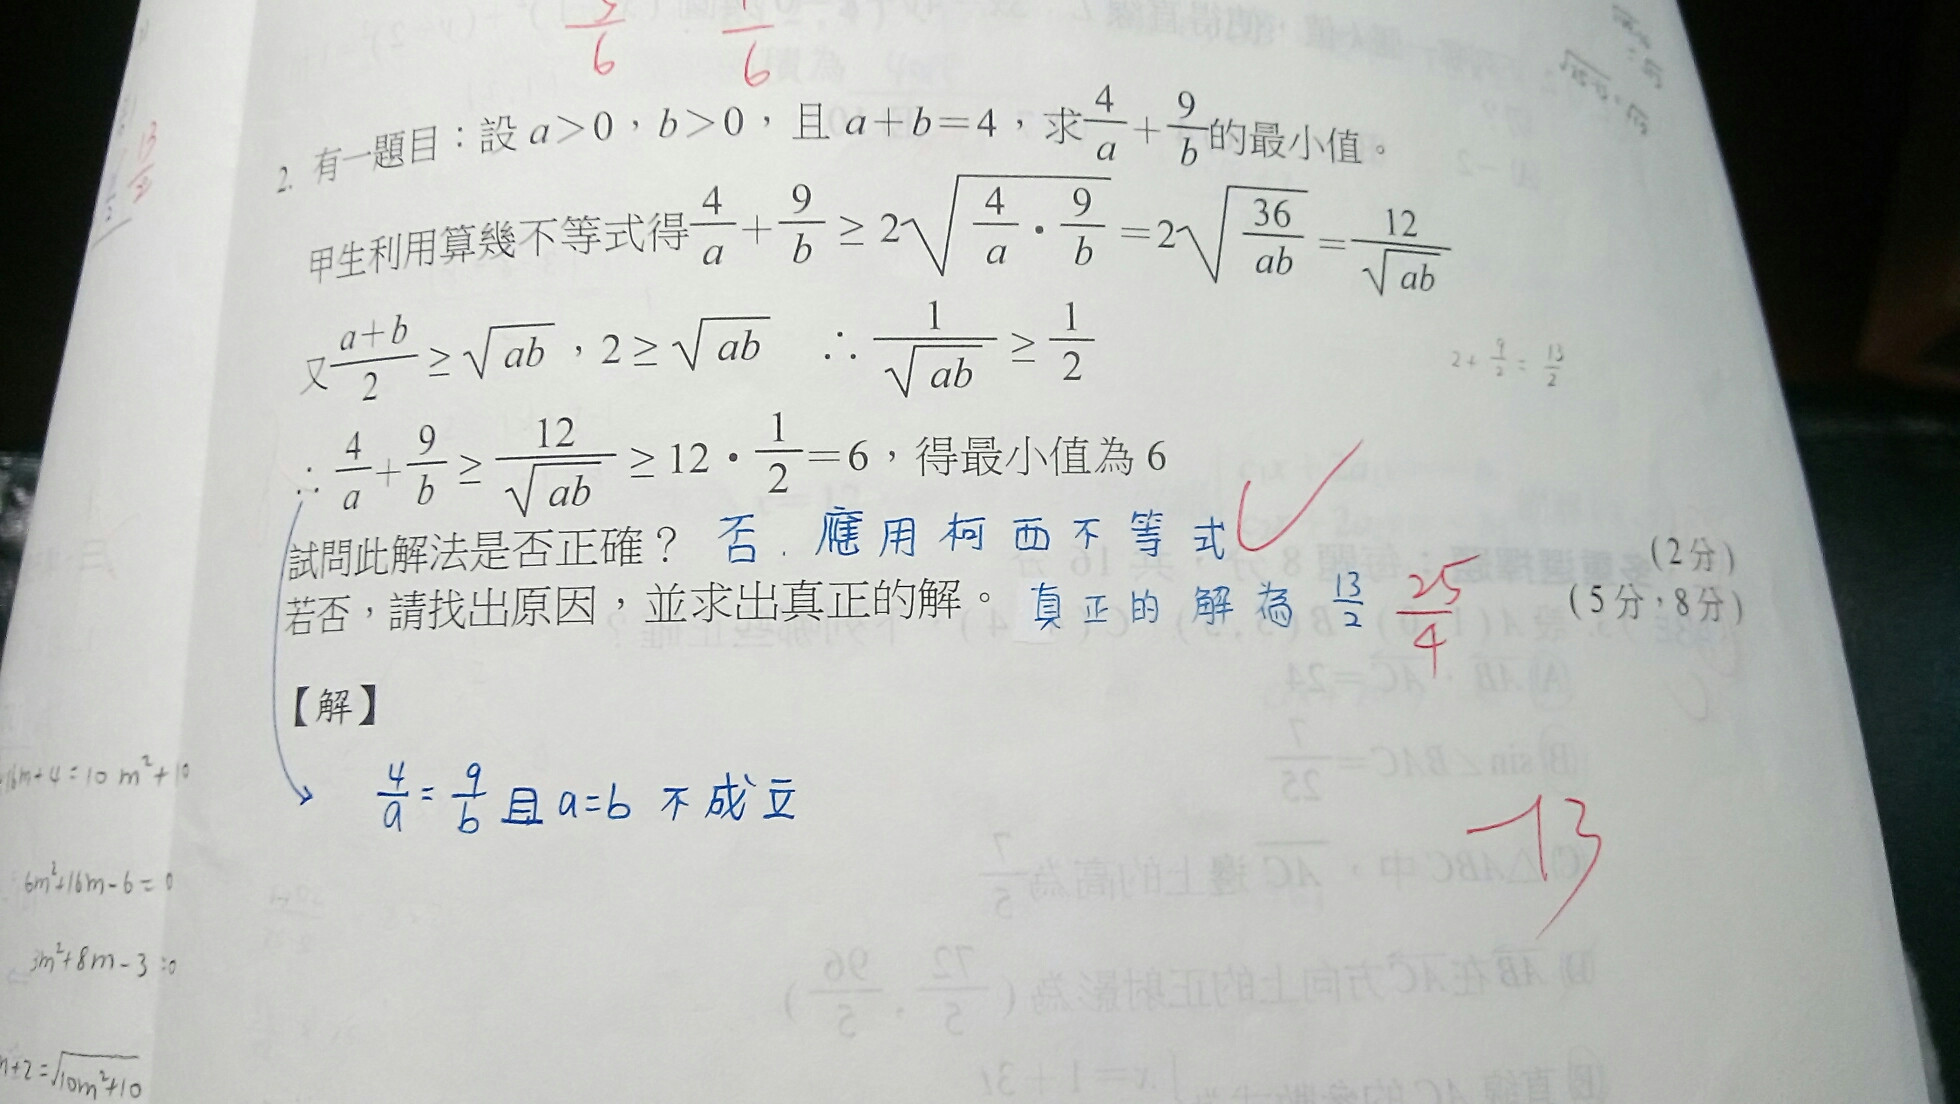 5/6 1/6
2. 有一題目：設 a>0，b>0，且 a+b=4，求 4/a + 9/b 的最小值。
甲生利用算幾不等式得 4/a + 9/b ≥ 2√(4/a · 9/b) = 2√(36/ab) = 12/√ab
又 (a+b)/2 ≥ √ab，2 ≥ √ab ∴ 1/√ab ≥ 1/2
2+ 9/2 = 13/2
∴ 4/a + 9/b ≥ 12/√ab ≥ 12 · 1/2 = 6，得最小值為 6
試問此解法是否正確？ 否. 應用柯西不等式 (2分)
若否，請找出原因，並求出真正的解。 真正的解為 13/2 25/4 (5分，8分)
【解】
4/a = 9/b 且 a=b 不成立
-13
16m+4=10m²+10
6m²+16m-6=0
3m²+8m-3=0
+2=√10m²+10
13/2